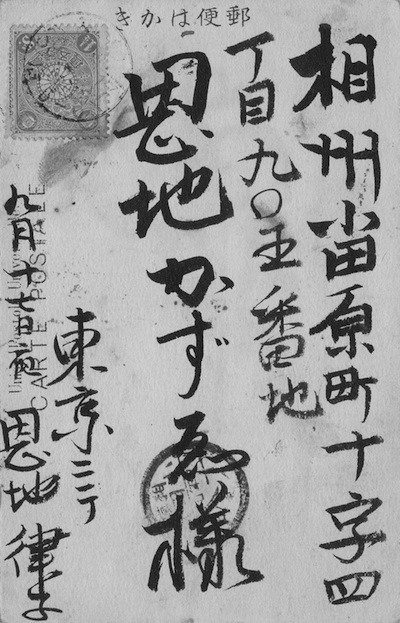 郵便はかき
相州小田原町十字四
丁目九〇五番地
恩地かずゑ様
東京ニテ
九月十七日
恩地律子
CARTE POSTALE